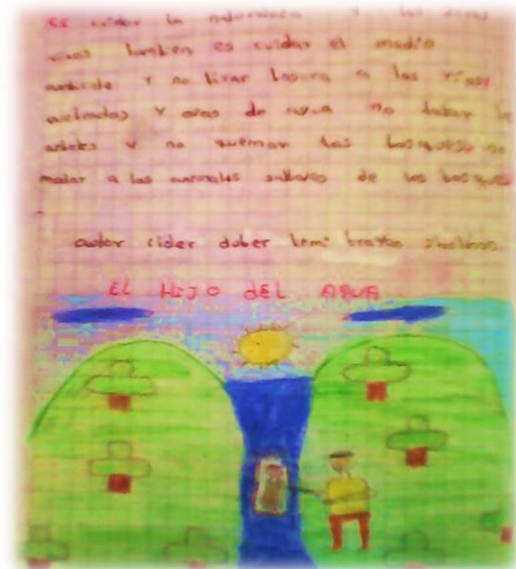 es cuidar la naturaleza y los seres
vivos tambien es cuidar el medio
ambiente y no tirar basura a los rios
y de agua no talar
arboles y no quemar los bosques no
matar a los animales de los bosques
autor lider duber
EL HIJO DEL AGUA